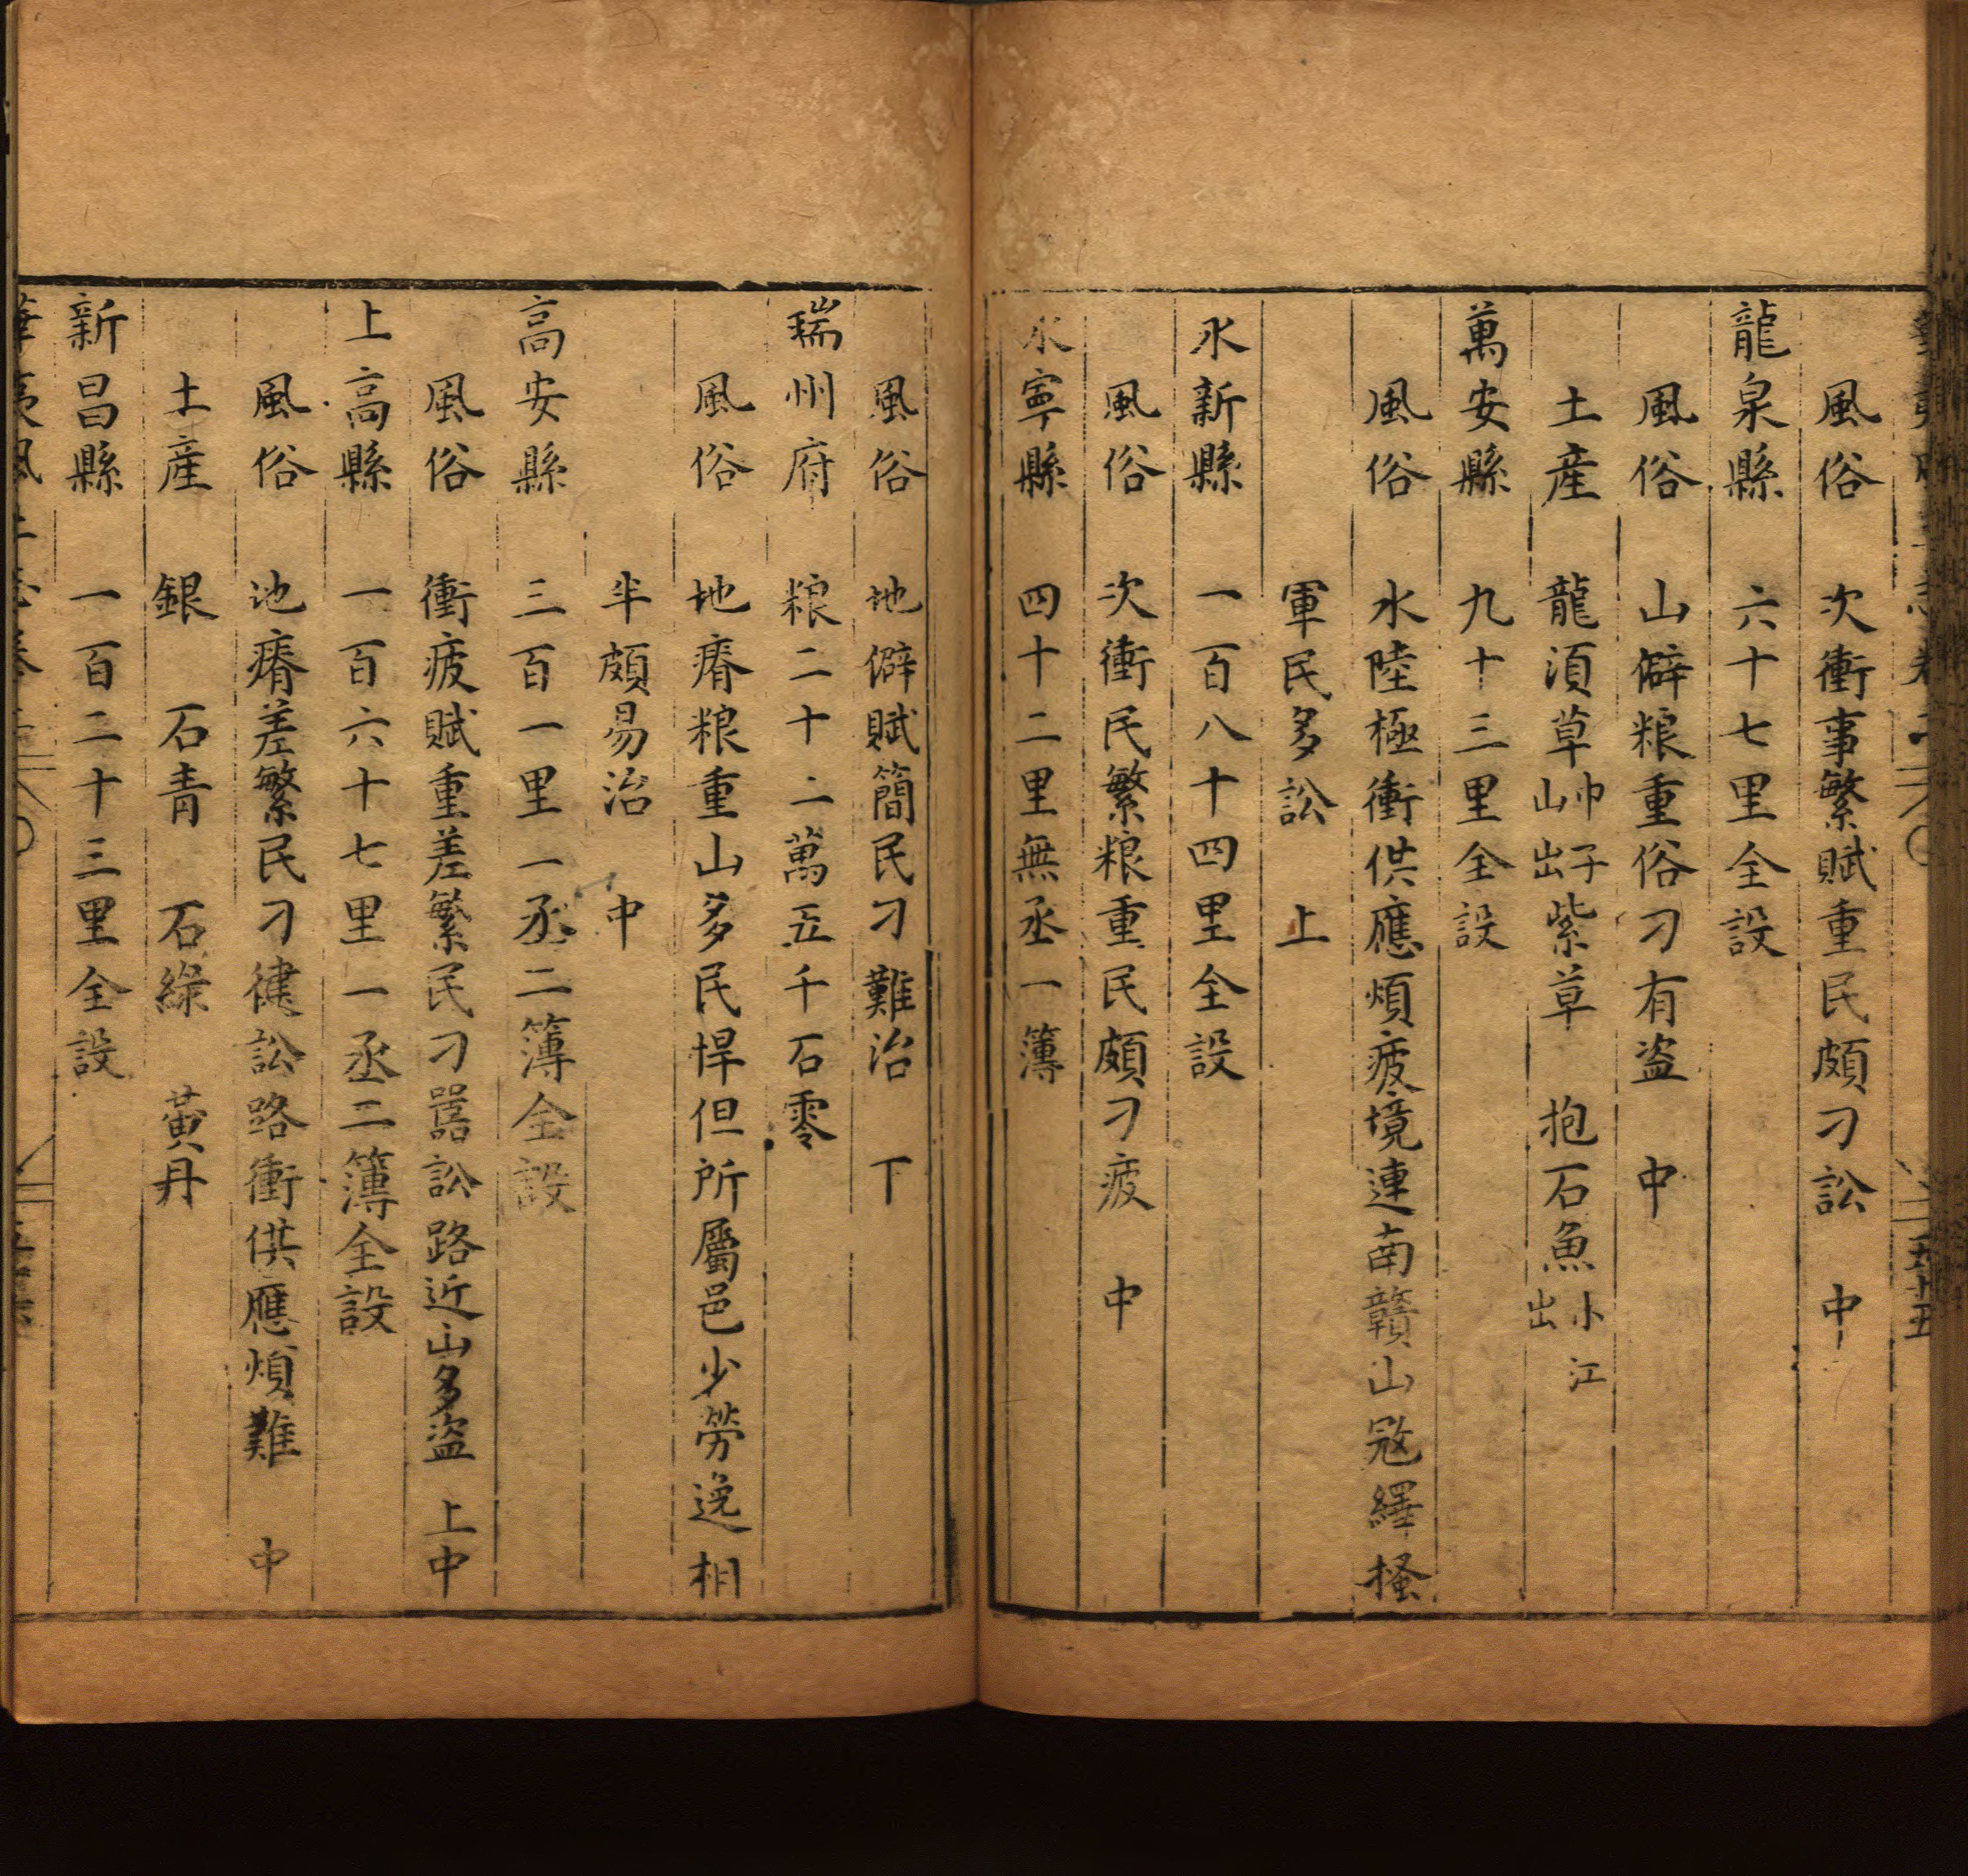 風俗 次衝事繁賦重民頗刁訟 中
龍泉縣 六十七里全設
風俗 山僻粮重俗刁有盗 中
土産 龍湏草巾子山出紫草 抱石魚小江出
萬安縣 九十三里全設
風俗 水陸極衝供應煩疲境連南贛山冦繹搔
軍民多訟 上
永新縣 一百八十四里全設
風俗 次衝民繁粮重民頗刁疲 中
永寧縣 四十二里無丞一簿
風俗 地僻賦簡民刁難治 下
瑞州府 粮二十二萬五千石零
風俗 地瘠粮重山多民悍但所屬邑少勞逸相
半頗易治 中
高安縣 三百一里一丞二簿全設
風俗 衝疲賦重差繁民刁嚚訟路近山多盗 上中
上高縣 一百六十七里一丞二簿全設
風俗 地瘠差繁民刁健訟路衝供應煩難 中
土産 銀 石青 石綠 黄丹
新昌縣 一百二十三里全設